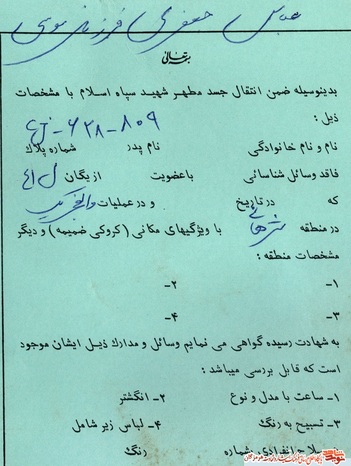 عباس جعفری فرزند موسی
بسمه تعالی
بدینوسیله ضمن انتقال جسد مطهر شهید سپاه اسلام با مشخصات
ذیل :
۸۰۹-۶۲۸-
نام و نام خانوادگی نام پدر شماره پلاک
فاقد وسائل شناسائی باعضویت از یگان ل
که در تاریخ و در عملیات والفجر یک
در منطقه شرهانی با ویژگیهای مکانی (کروکی ضمیمه) و دیگر
مشخصات منطقه :
۱- ۲-
۳- ۴-
به شهادت رسیده گواهی می نمایم وسائل و مدارک ذیل ایشان موجود
است که قابل بررسی میباشد :
۱- ساعت با مدل و نوع ۲- انگشتر
۳- تسبیح به رنگ ۴- لباس زیر شامل
سلاح انفرادی شماره رنگ